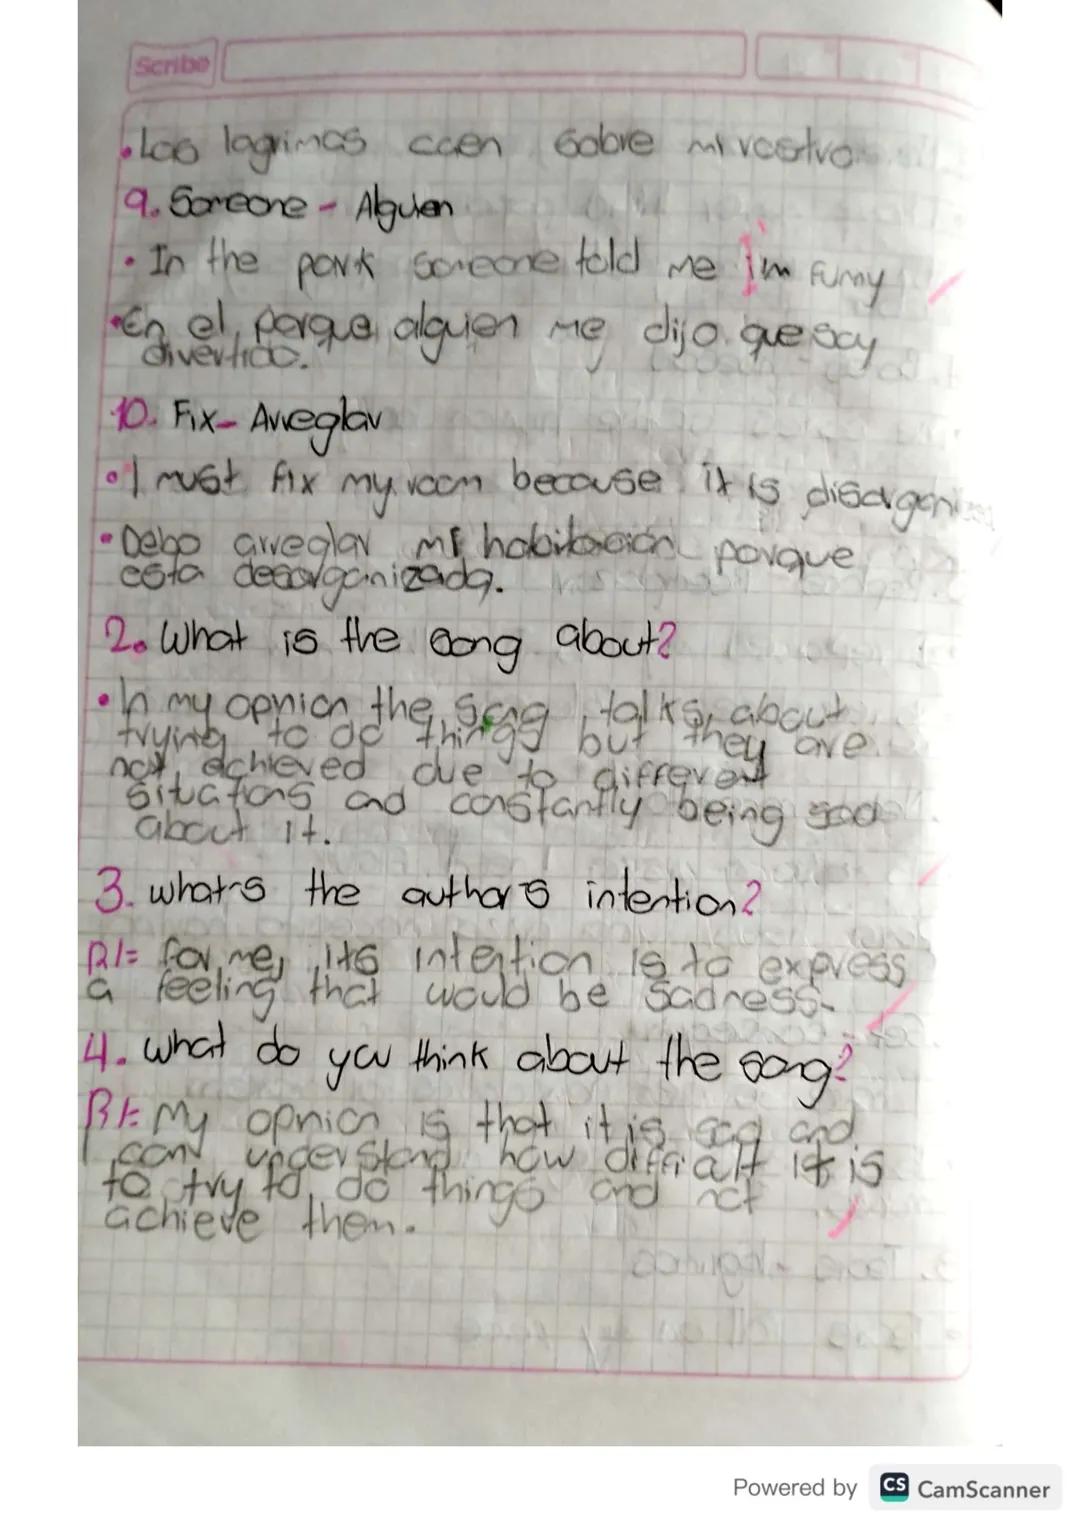 Scribe
• Las lagrimas caen sobre mi rostro
9. Someone - Alguien
• In the park someone told me I'm funny
• En el parque alguien me dijo que soy
divertido.
10. Fix - Arreglar
• I must fix my room because it is disorganized
• Debo arreglar mi habitación porque
esta desorganizada.
2. What is the song about?
• In my opnion the song talks about
trying to do things but they are
not achieved due to different
situations and constantly being sad
about it.
3. what's the author's intention?
R/= for me, its intention is to express
a feeling that would be sadness.
4. what do you think about the song?
R/= My opnion is that it is sad and
I can understand how difficult it is
to try to do things and not
achieve them.
Powered by CS CamScanner